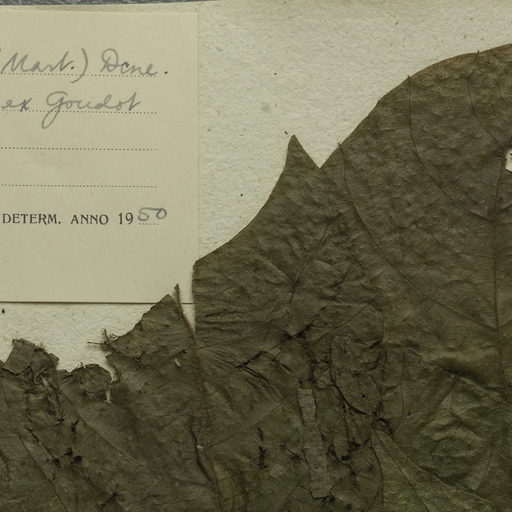 (Mart.) Dcne.
ex Goudot
DETERM. ANNO 1950